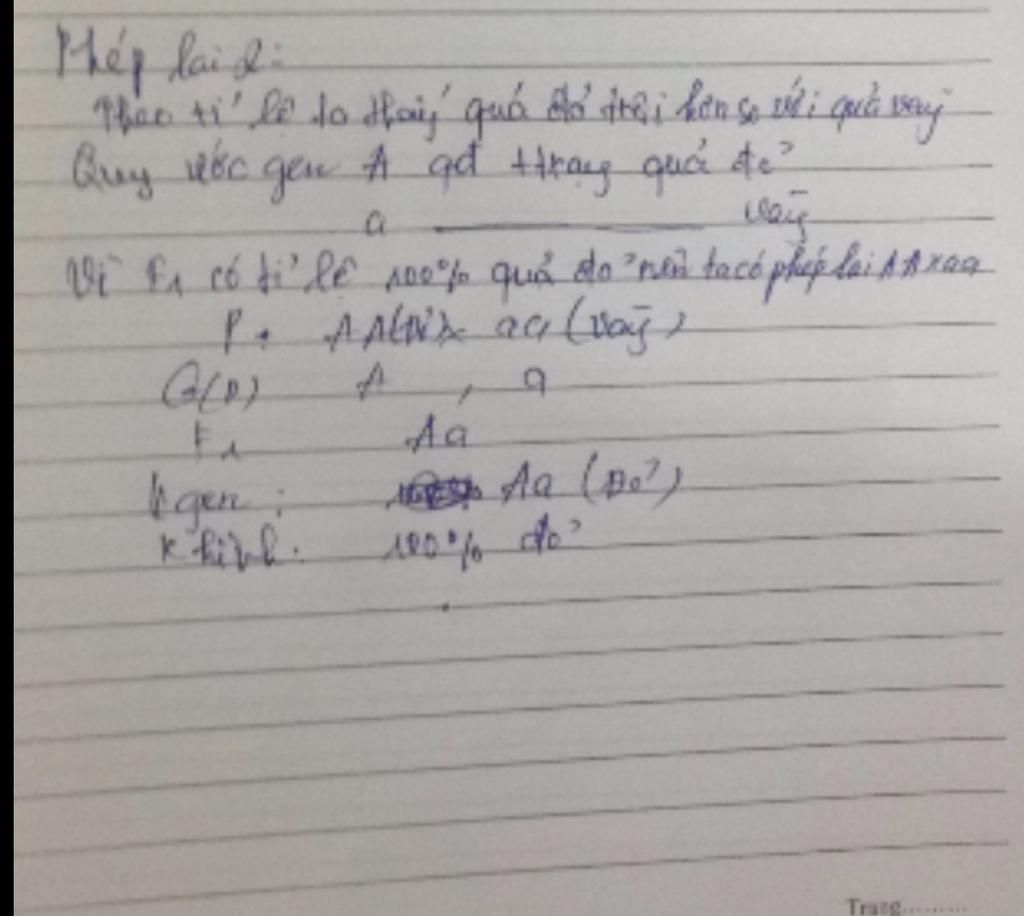 Phép lai 2:
Theo tỉ lệ ta thấy quả đỏ trội hơn so với quả vàng
Quy ước gen A qđ ttrạng quả đỏ
a ——— vàng
Vì F1 có tỉ lệ 100% quả đỏ nên ta có phép lai AA x aa
P: AA(Đỏ) x aa (vàng)
G(P) A , a
F1 Aa
K gen: Aa (Đỏ)
K hình: 100% đỏ
Trang.........